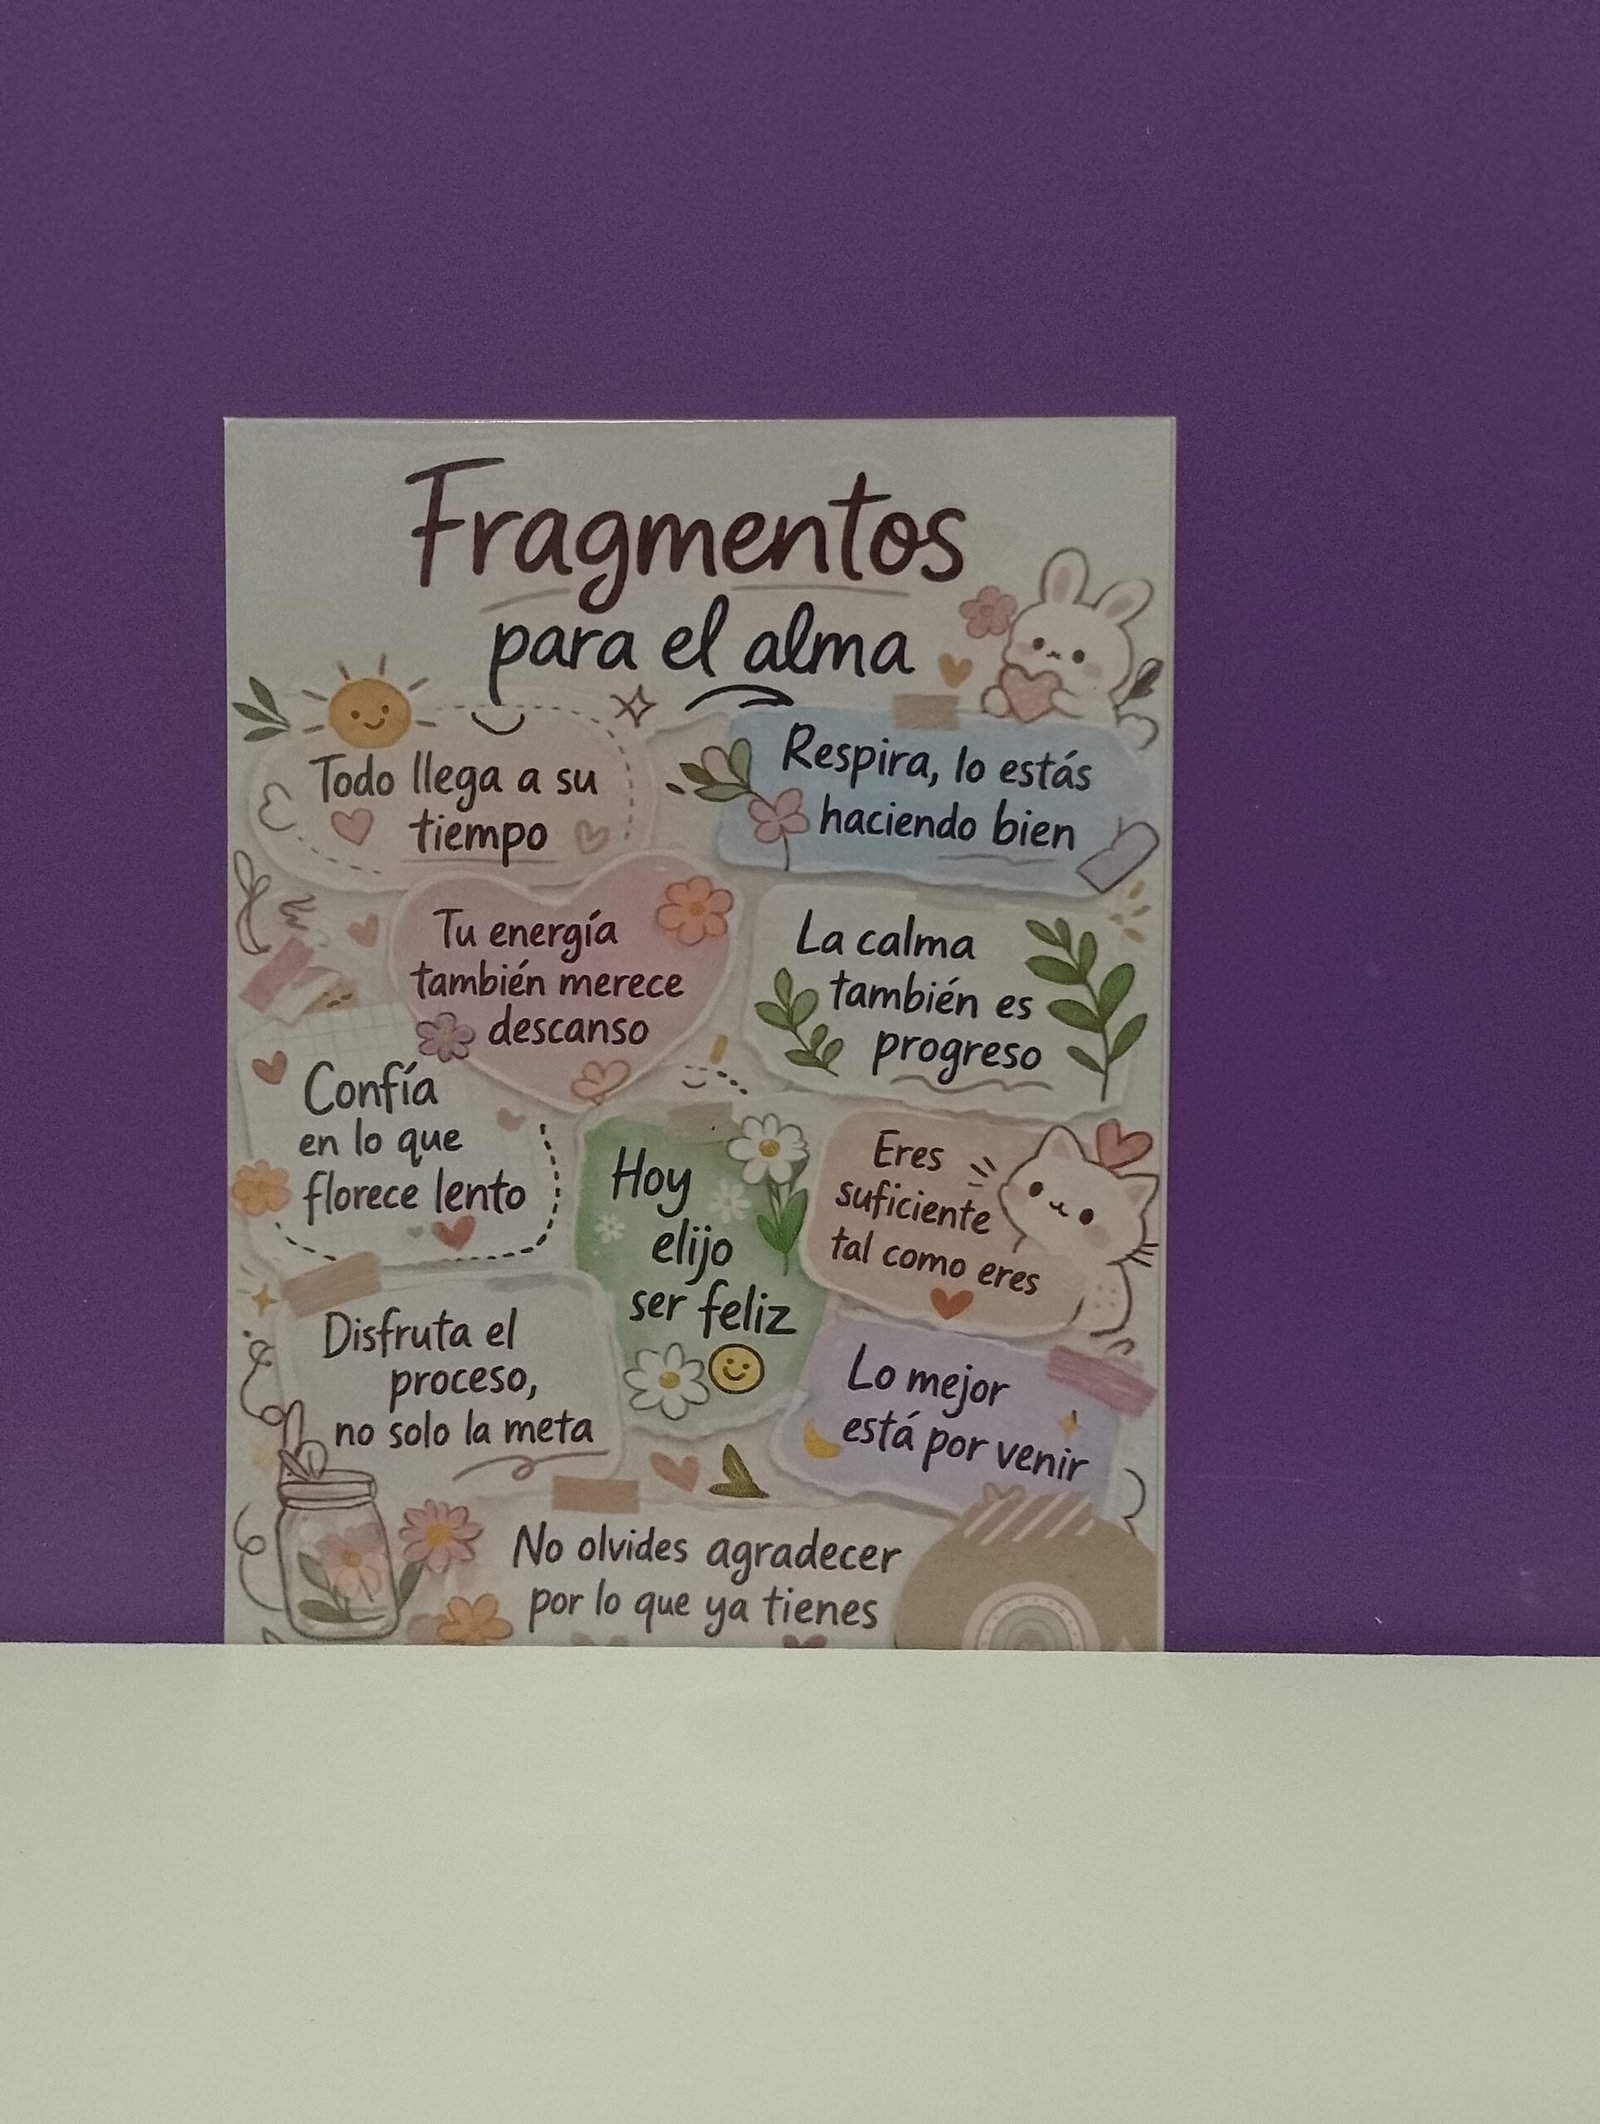 Fragmentos
para el alma
Todo llega a su
tiempo
Respira, lo estás
haciendo bien
Tu energía
también merece
descanso
La calma
también es
progreso
Confía
en lo que
florece lento
Hoy
elijo
ser feliz
Eres
suficiente
tal como eres
Disfruta el
proceso,
no solo la meta
Lo mejor
está por venir
No olvides agradecer
por lo que ya tienes